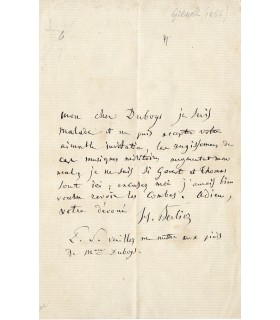 mon cher Duboys je suis
malade et ne puis accepter votre
aimable invitation, les rugissements de
ces musiques militaires augmentent mon
mal; je ne sais si Gounod et Thomas
sont ici; excusez moi j'aurais bien
voulu revoir les Combes. adieu,
votre dévoué
H. Berlioz
P. S. veuillez me mettre aux pieds
de Mme Duboys.